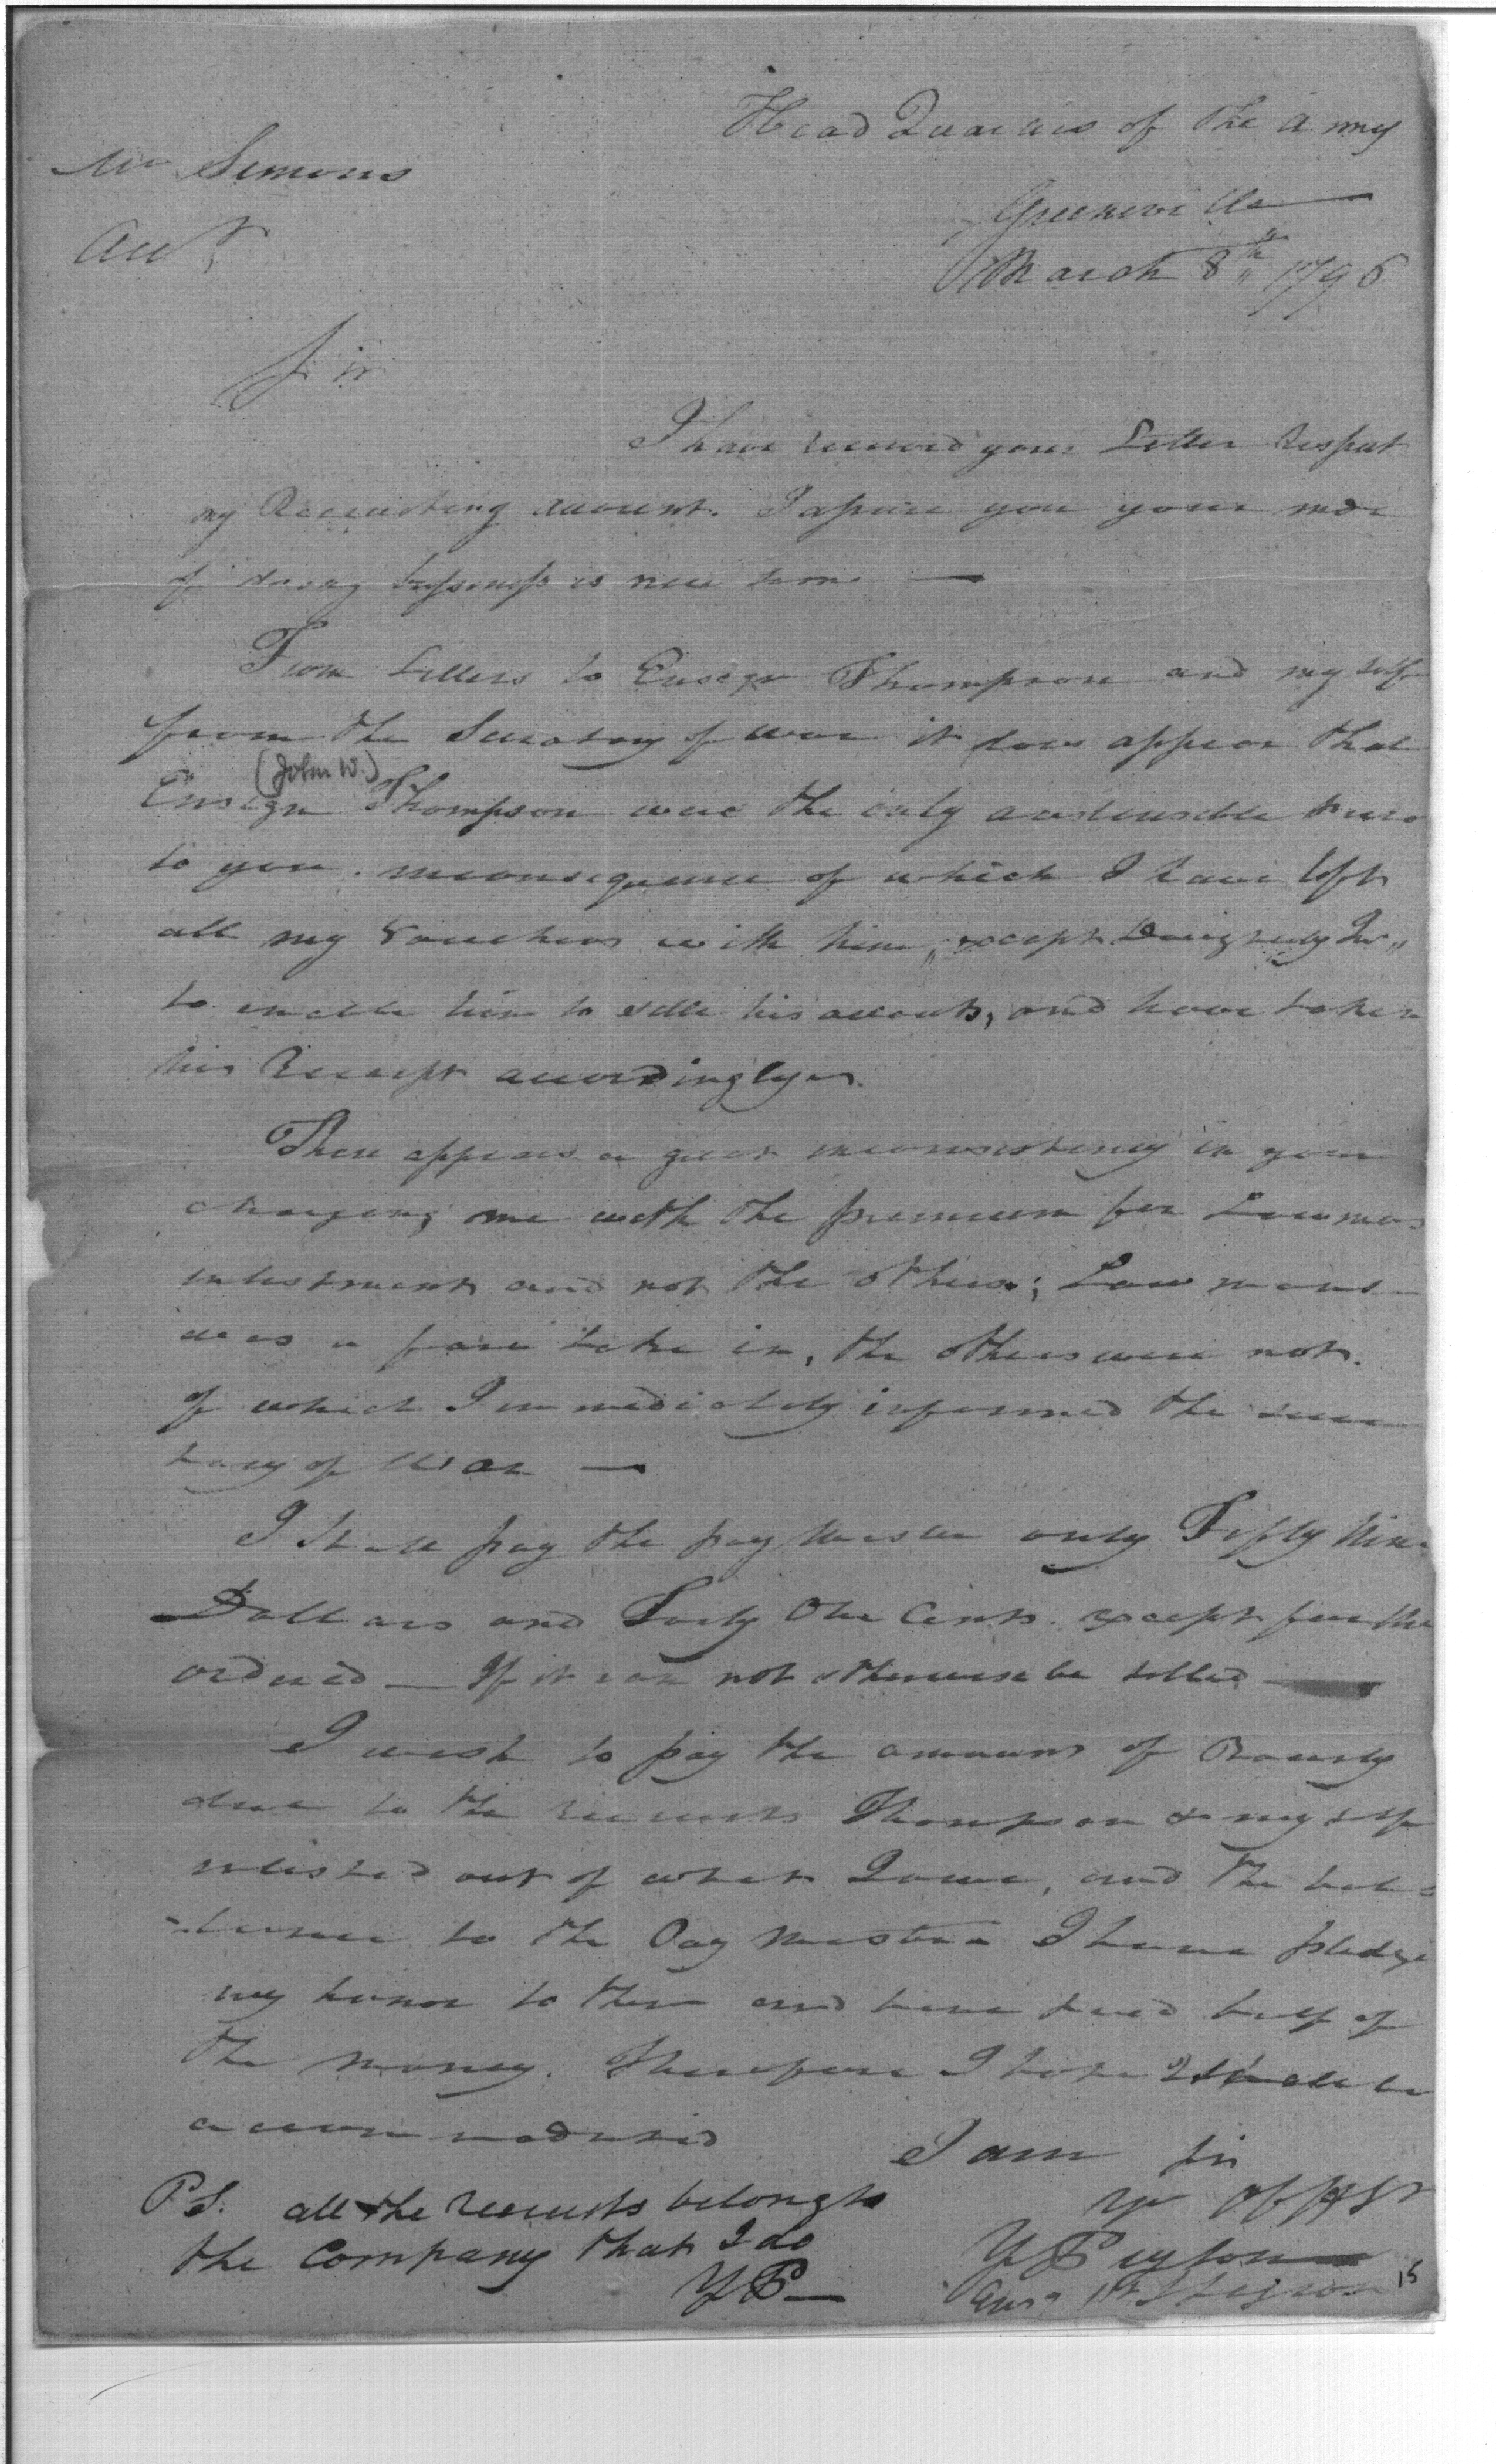 Head Quarters of the Army
Mr Simons
Greeneville
Aut
March 8th 1796
Sir
I have received your Letter Respect
my Recruiting account. I assure you your mode
of doing bussiness is new to me —
From Letters to Ensign Thompson and my self
from the Secratary of war it does appear that
(John W.)
Ensign Thompson were the only
to you. inconsequence of which I have left
all my Vouchers with him, except
to enable him to settle his accounts, and have taken
his Receipt accordingly.
There appears a great inconsistency in your
charging me with the premium for Lowmans
inlistment and not the others; Lowmans
was a fair take in, the others were not.
of which I immediately informed the secre
tary of War —
I shall pay the pay Master only Fifty Nine
Dollars and Forty One Cents. except further
ordered — If it can not otherwise be settled —
I wish to pay the amount of Bounty
due to the recruits Thompson & my self
inlisted out of what I owe, and the bal
lance to the Pay Master I have pledge
my honor to them and have paid half of
the money. Therefore I hope I shall be
accommodated
I am Sir
P.S. all the recruits belongs to
yr Ob
the Company that I do
Y Peyton
YP —
Ens 1st S Legion
15